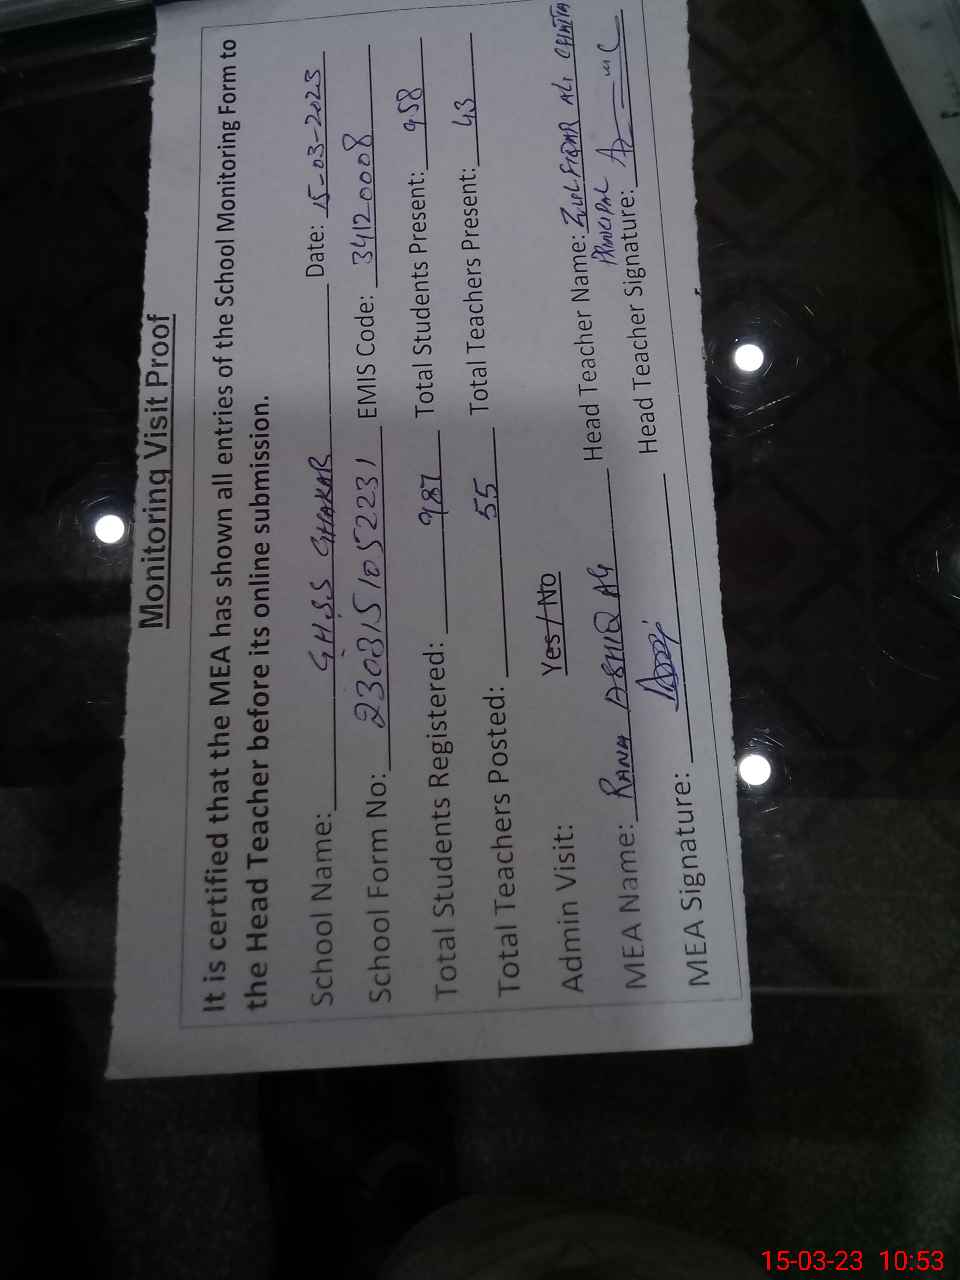 Monitoring Visit Proof
It is certified that the MEA has shown all entries of the School Monitoring Form to
the Head Teacher before its online submission.
School Name: G.H.S.S GHAKAR Date: 15-03-2023
School Form No: 2303151052231 EMIS Code: 34120008
Total Students Registered: 987 Total Students Present: 958
Total Teachers Posted: 55 Total Teachers Present: 43
Admin Visit: Yes / No
MEA Name: RANA ASHIQ Head Teacher Name: ZULFIQAR ALI
PRINCIPAL
MEA Signature: Head Teacher Signature:
15-03-23 10:53